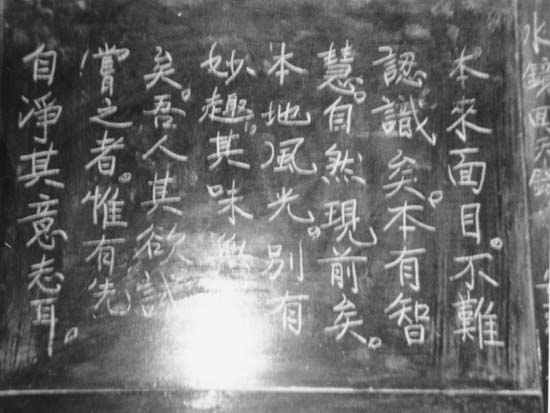 水鏡回天錄
本來面目。不難
認識矣。本有智
慧。自然現前矣。
本地風光。別有
妙趣。其味無
矣。吾人其欲試
嘗之者。惟有先
自淨其意志耳。